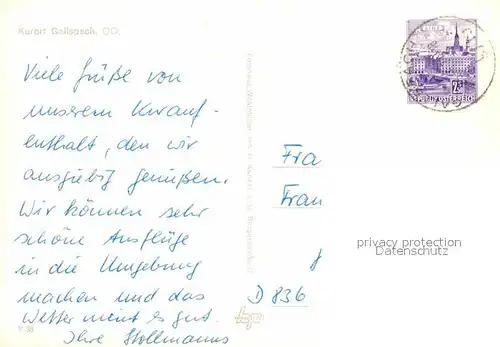 Kurort Gallspach, OÖ.
Viele Grüße von
unserem Kurauf-
enthalt, den wir
ausgiebig genießen.
Wir können sehr
schöne Ausflüge
in die Umgebung
machen und das
Wetter meint es gut.
Ihre Hollmanns
P 38
Fra
Frau
D 836
LINZ
2.50
REPUBLIK ÖSTERREICH
privacy protection
Datenschutz